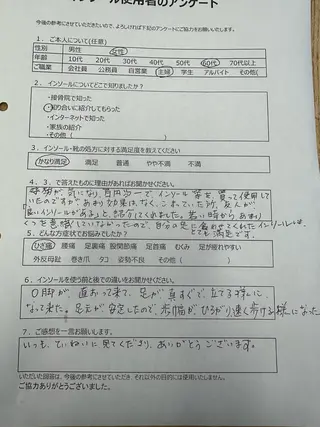 インソール使用者のアンケート
今後の参考にさせていただきたいので、よろしければ下記のアンケートにご協力をお願いいたします。
1．ご本人について(任意)
性別 男性 女性
年齢 10代 20代 30代 40代 50代 60代 70代以上
ご職業 会社員 公務員 自営業 主婦 学生 アルバイト その他(
2．インソールについてどこで知りましたか？
・接骨院で知った
・知り合いに紹介してもらった
・インターネットで知った
・家族の紹介
・その他（ ）
3．インソール・靴の処方に対する満足度を教えてください
かなり満足 満足 普通 やや不満 不満
4．3．で答えたものに理由があればお聞かせください。
が、気になり、百円均一で、インソール等を買って使用し
ていたのですが、あまり効果はなく、これでいた所、友人が
良いインソールがあると、紹介してくれました。若い時から、あまり
くつを意識していなかったので、自分の足に合わせてくれたインソールは、
とても満足です。
5．どんな症状でお悩みでしたか？
ひざ痛 腰痛 足裏痛 股関節痛 足首痛 むくみ 足が疲れやすい
外反母趾 巻き爪 タコ 姿勢不良 その他（ ）
6．インソールを使う前と後での違いをお聞かせください。
O脚が、直って来て、足が真すぐで、立てる様に、
なって来た。足元が安定したので、歩幅がひろがり速く歩ける様になった
7．ご感想を一言お願いします。
いつも、ていねいに見てくださり、ありがとうございます。
いただいた回答は、今後の参考にさせていただき、それ以外の目的には使用いたしません。
ご協力ありがとうございました。